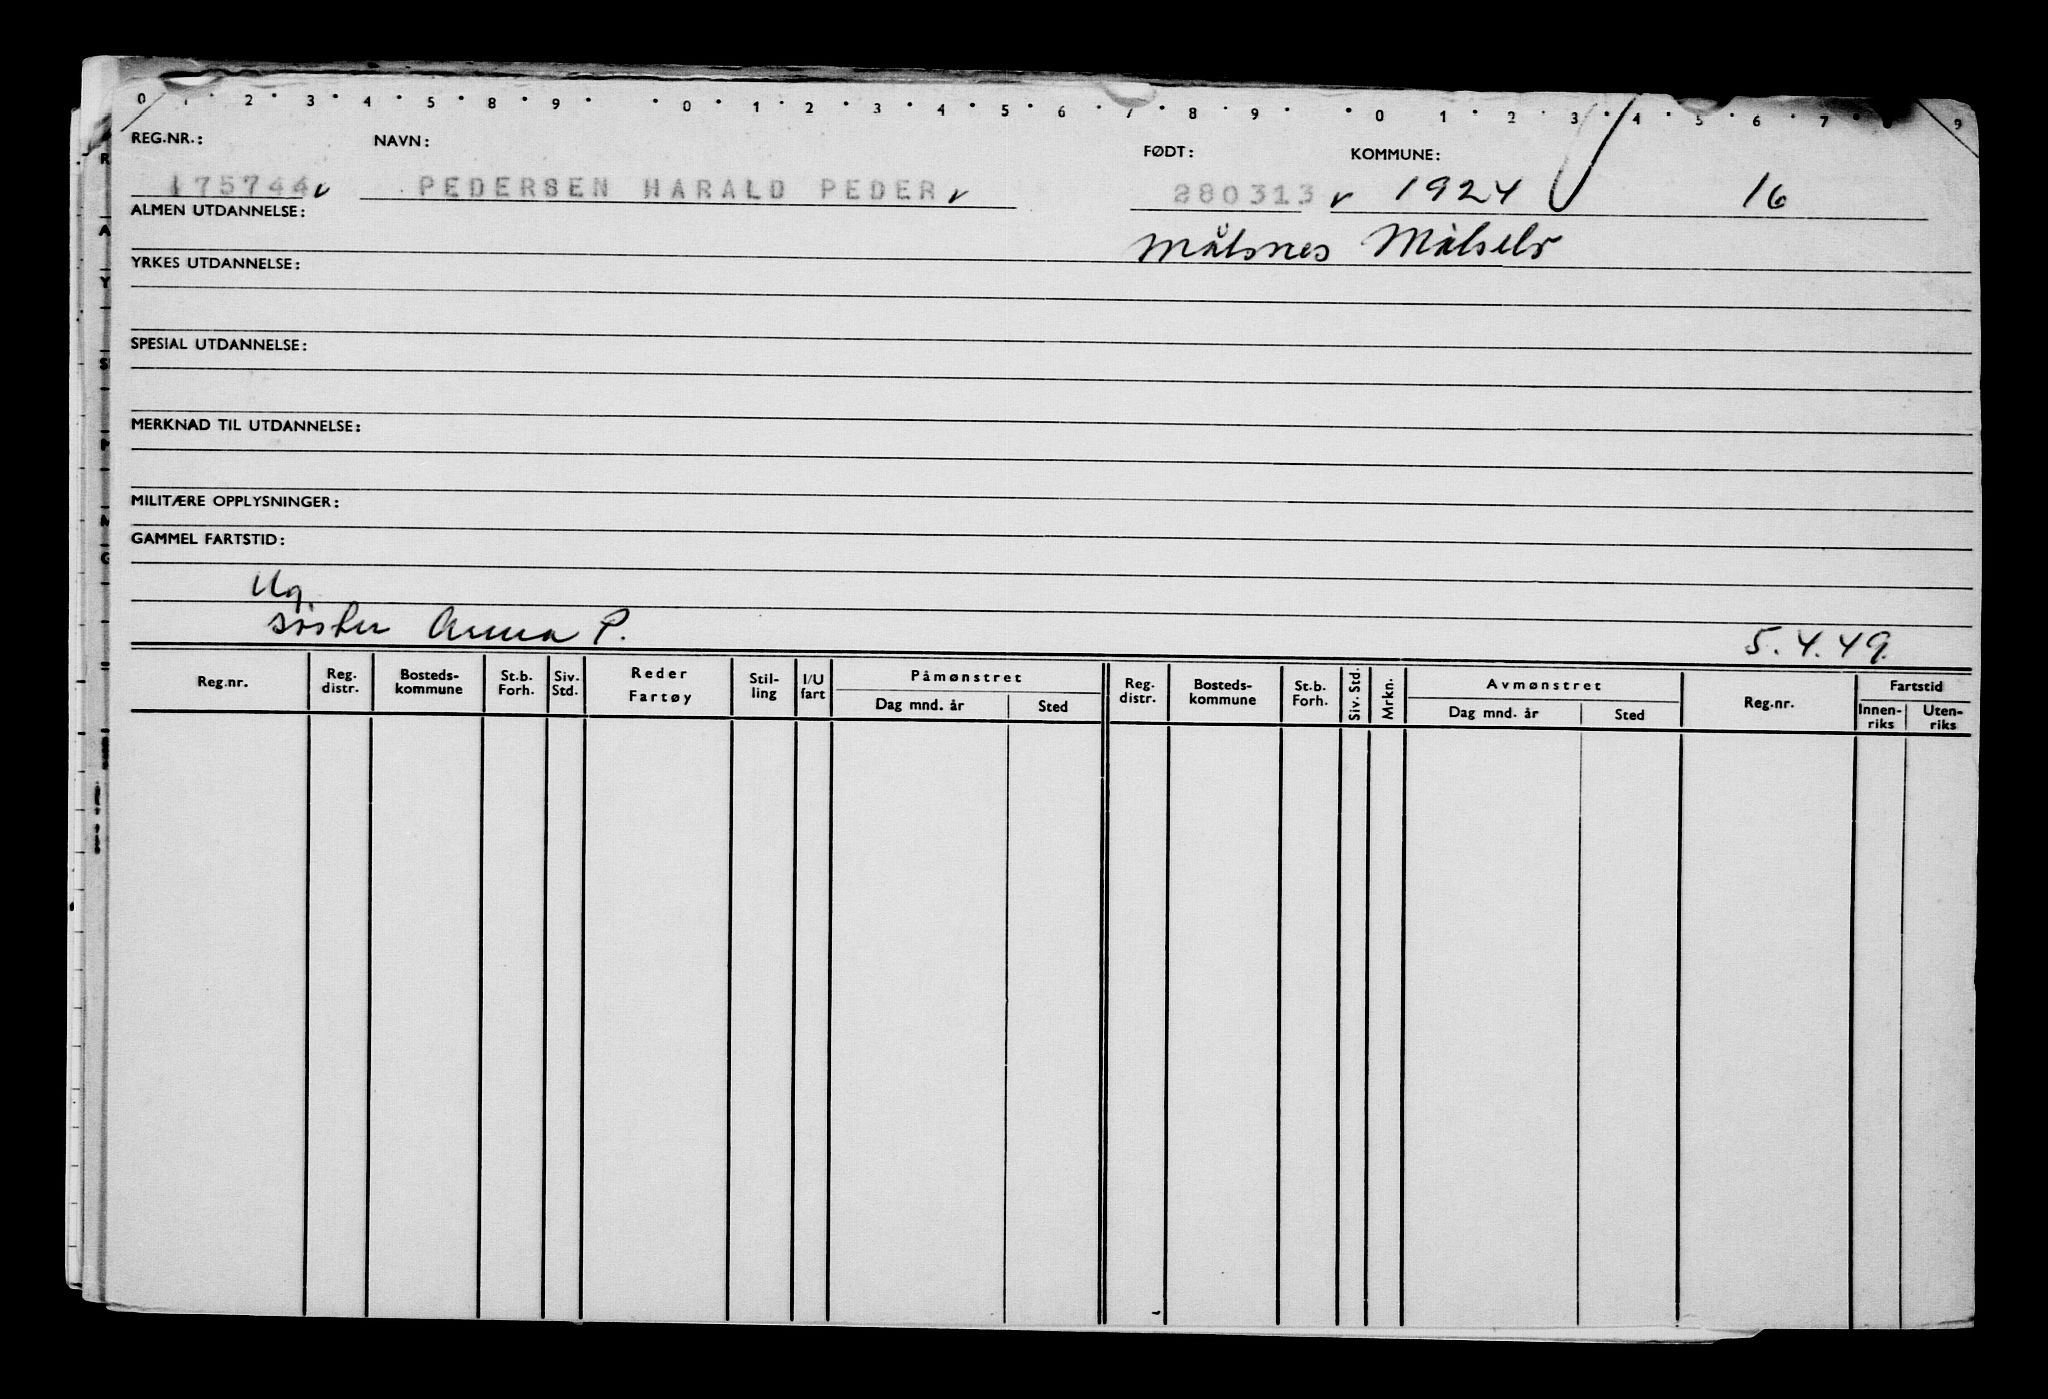 0 1 2 3 4 5 8 9 0 1 2 3 4 5 6 7 8 9 0 1 2 3 4 5 6 7 9
REG.NR.: NAVN: FØDT: KOMMUNE:
175744 PEDERSEN HARALD PEDER 280313 1924 16
ALMEN UTDANNELSE: Målsnes Målselv
YRKES UTDANNELSE:
SPESIAL UTDANNELSE:
MERKNAD TIL UTDANNELSE:
MILITÆRE OPPLYSNINGER:
GAMMEL FARTSTID:
Ug.
søster Anna P. 5.4.49.
Reg.nr. Reg. distr. Bosteds- kommune St.b. Forh. Siv. Std. Reder Fartøy Stil- ling I/U fart Påmønstret Dag mnd. år Sted Reg. distr. Bosteds- kommune St.b. Forh. Siv. Std. Mrkn. Avmønstret Dag mnd. år Sted Reg.nr. Fartstid Innen- riks Uten- riks